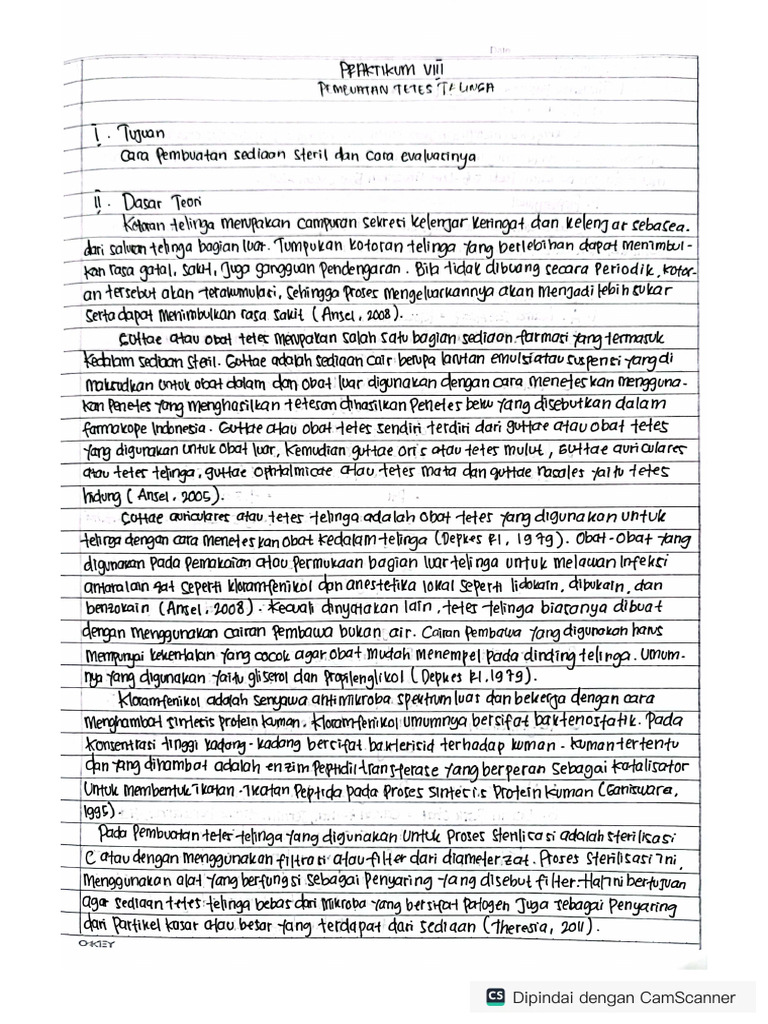 Date
PRAKTIKUM VIII
PEMBUATAN TETES TELINGA
I. Tujuan
Cara Pembuatan sediaan steril dan cara evaluasinya
II. Dasar Teori
Kotoran telinga merupakan campuran sekresi kelenjar keringat dan kelenjar sebasea.
dari saluran telinga bagian luar. Tumpukan kotoran telinga yang berlebihan dapat menimbul-
kan rasa gatal, sakit, juga gangguan Pendengaran. Bila tidak dibuang secara Periodik, kotor-
an tersebut akan terakumulasi, sehingga Proses mengeluarkannya akan menjadi lebih sukar
serta dapat menimbulkan rasa sakit (Ansel, 2008).
Guttae atau obat tetes merupakan salah satu bagian sediaan farmasi yang termasuk
kedalam sediaan steril. Guttae adalah sediaan cair berupa larutan emulsi atau suspensi yang di
maksudkan untuk obat dalam dan obat luar digunakan dengan cara meneteskan mengguna-
kan Penetes yang menghasilkan tetesan dihasilkan Penetes beku yang disebutkan dalam
farmakope Indonesia. Guttae atau obat tetes sendiri terdiri dari guttae atau obat tetes
yang digunakan untuk obat luar, kemudian guttae oris atau tetes mulut, guttae auriculares
atau tetes telinga, guttae ophtalmicae atau tetes mata dan guttae nasales yaitu tetes
hidung (Ansel, 2005).
Guttae auriculares atau tetes telinga adalah obat tetes yang digunakan untuk
telinga dengan cara meneteskan obat kedalam telinga (Depkes RI, 1979). Obat-obat yang
digunakan pada pemakaian atau Permukaan bagian luar telinga untuk melawan infeksi
antara lain zat seperti kloramfenikol dan anestetika lokal seperti lidokain, dibukain, dan
benzokain (Ansel, 2008). Kecuali dinyatakan lain, tetes telinga biasanya dibuat
dengan menggunakan cairan Pembawa bukan air. Cairan Pembawa yang digunakan harus
mempunyai kekentalan yang cocok agar obat mudah menempel pada dinding telinga. Umum-
nya yang digunakan yaitu gliserol dan Propilenglikol (Depkes RI, 1979).
Kloramfenikol adalah senyawa antimikroba spektrum luas dan bekerja dengan cara
menghambat sintesis protein kuman. Kloramfenikol umumnya bersifat bakteriostatik. Pada
konsentrasi tinggi kadang-kadang bersifat bakterisid terhadap kuman-kuman tertentu
dan yang dihambat adalah enzim Peptidil transferase yang berperan sebagai katalisator
untuk membentuk ikatan-ikatan Peptida pada Proses sintesis Protein kuman (Ganiswara,
1995).
Pada Pembuatan tetes telinga yang digunakan untuk Proses sterilisasi adalah sterilisasi
C atau dengan menggunakan filtrasi atau filter dari diameter zat. Proses sterilisasi ini,
menggunakan alat yang berfungsi sebagai Penyaring yang disebut filter. Hal ini bertujuan
agar sediaan tetes telinga bebas dari mikroba yang bersifat patogen juga sebagai Penyaring
dari Partikel kasar atau besar yang terdapat dari sediaan (Theresia, 2011).
OKEY
CS Dipindai dengan CamScanner